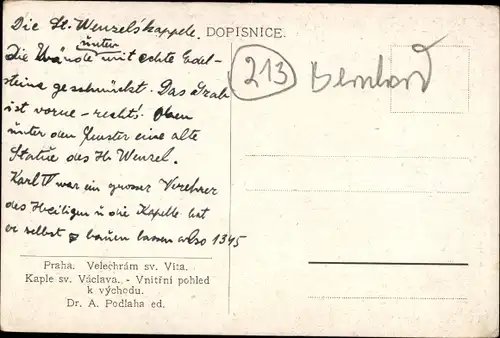 Die St. Wenzelskappele.
DOPISNICE.
unten
Die Wände mit echte Edel-
steine geschmückt. Das Grab
ist vorne - rechts! Oben
unter dem Fenster eine alte
Statue des Hl. Wenzel.
Karl IV war ein grosser Verehrer
des Heiligen u die Kapelle hat
er selbst bauen lassen also 1345
213
Bernhard
Praha. Velechrám sv. Víta.
Kaple sv. Václava. - Vnitřní pohled
k východu.
Dr. A. Podlaha ed.